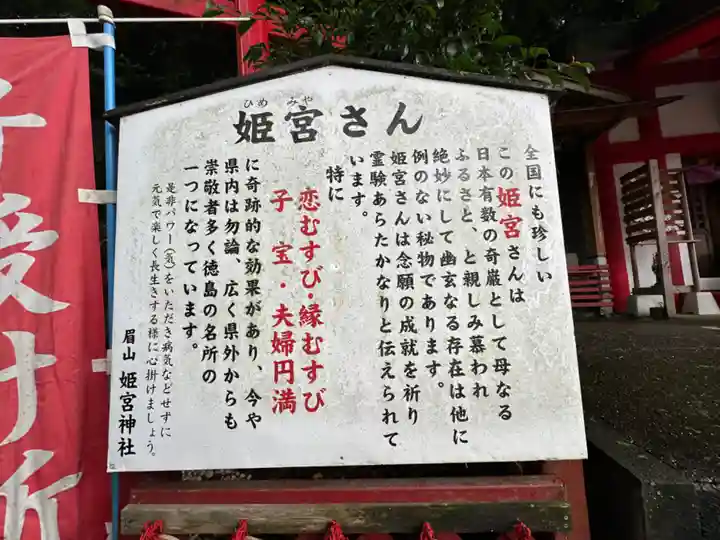 姫宮さん
ひめ みや
全国にも珍しい
この姫宮さんは
日本有数の奇巌として母なる
ふるさと、と親しみ慕われ
絶妙にして幽玄なる存在は他に
例のない秘物であります。
姫宮さんは念願の成就を祈り
霊験あらたかなりと伝えられて
います。
特に
恋むすび・縁むすび
子宝・夫婦円満
に奇跡的な効果があり、今や
県内は勿論、広く県外からも
崇敬者多く徳島の名所の
一つになっています。
是非パワー(気)をいただき病気などせずに
元気で楽しく長生きする様に心掛けましょう。
眉山 姫宮神社
子授け所